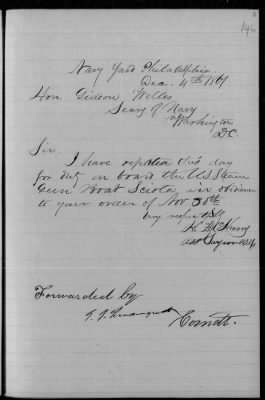 Navy Yard Philadelphia
Dec. 4th 1861
Hon Gideon Welles
Secy of Navy
Washington
D.C.
Sir
I have reported this day
for duty on board the U.S. Steam
Gun Boat Sciota, in obedience
to your order of Nov 30th
Very respectfully
Asst Surgeon
Forwarded by
Comdt.